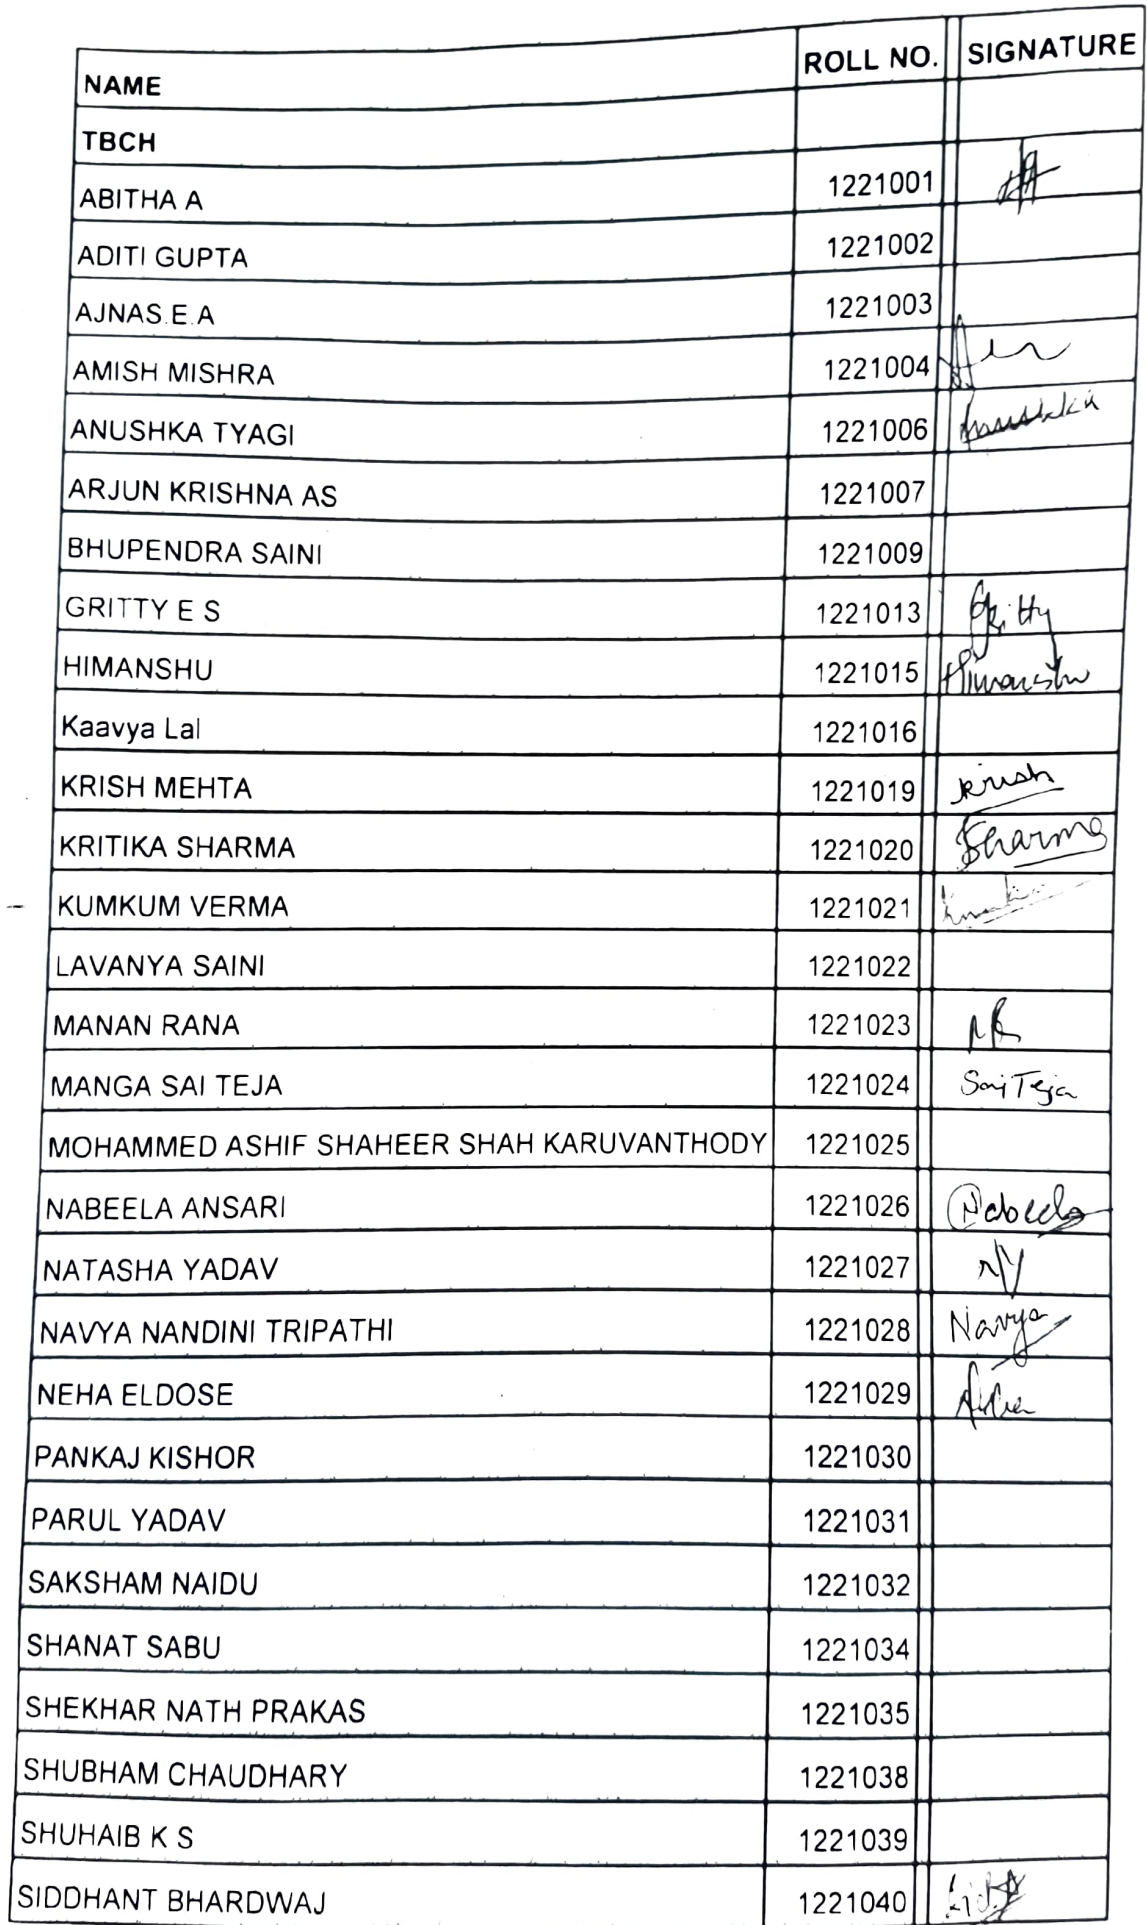 NAME ROLL NO. SIGNATURE
TBCH
ABITHA A 1221001
ADITI GUPTA 1221002
AJNAS.E.A 1221003
AMISH MISHRA 1221004
ANUSHKA TYAGI 1221006 Anushka
ARJUN KRISHNA AS 1221007
BHUPENDRA SAINI 1221009
GRITTY E S 1221013 Gritty
HIMANSHU 1221015 Himanshu
Kaavya Lal 1221016
KRISH MEHTA 1221019 Krish
KRITIKA SHARMA 1221020 Sharma
KUMKUM VERMA 1221021
LAVANYA SAINI 1221022
MANAN RANA 1221023 MR
MANGA SAI TEJA 1221024 Sai Teja
MOHAMMED ASHIF SHAHEER SHAH KARUVANTHODY 1221025
NABEELA ANSARI 1221026 Nabeela
NATASHA YADAV 1221027 NY
NAVYA NANDINI TRIPATHI 1221028 Navya
NEHA ELDOSE 1221029
PANKAJ KISHOR 1221030
PARUL YADAV 1221031
SAKSHAM NAIDU 1221032
SHANAT SABU 1221034
SHEKHAR NATH PRAKAS 1221035
SHUBHAM CHAUDHARY 1221038
SHUHAIB K S 1221039
SIDDHANT BHARDWAJ 1221040